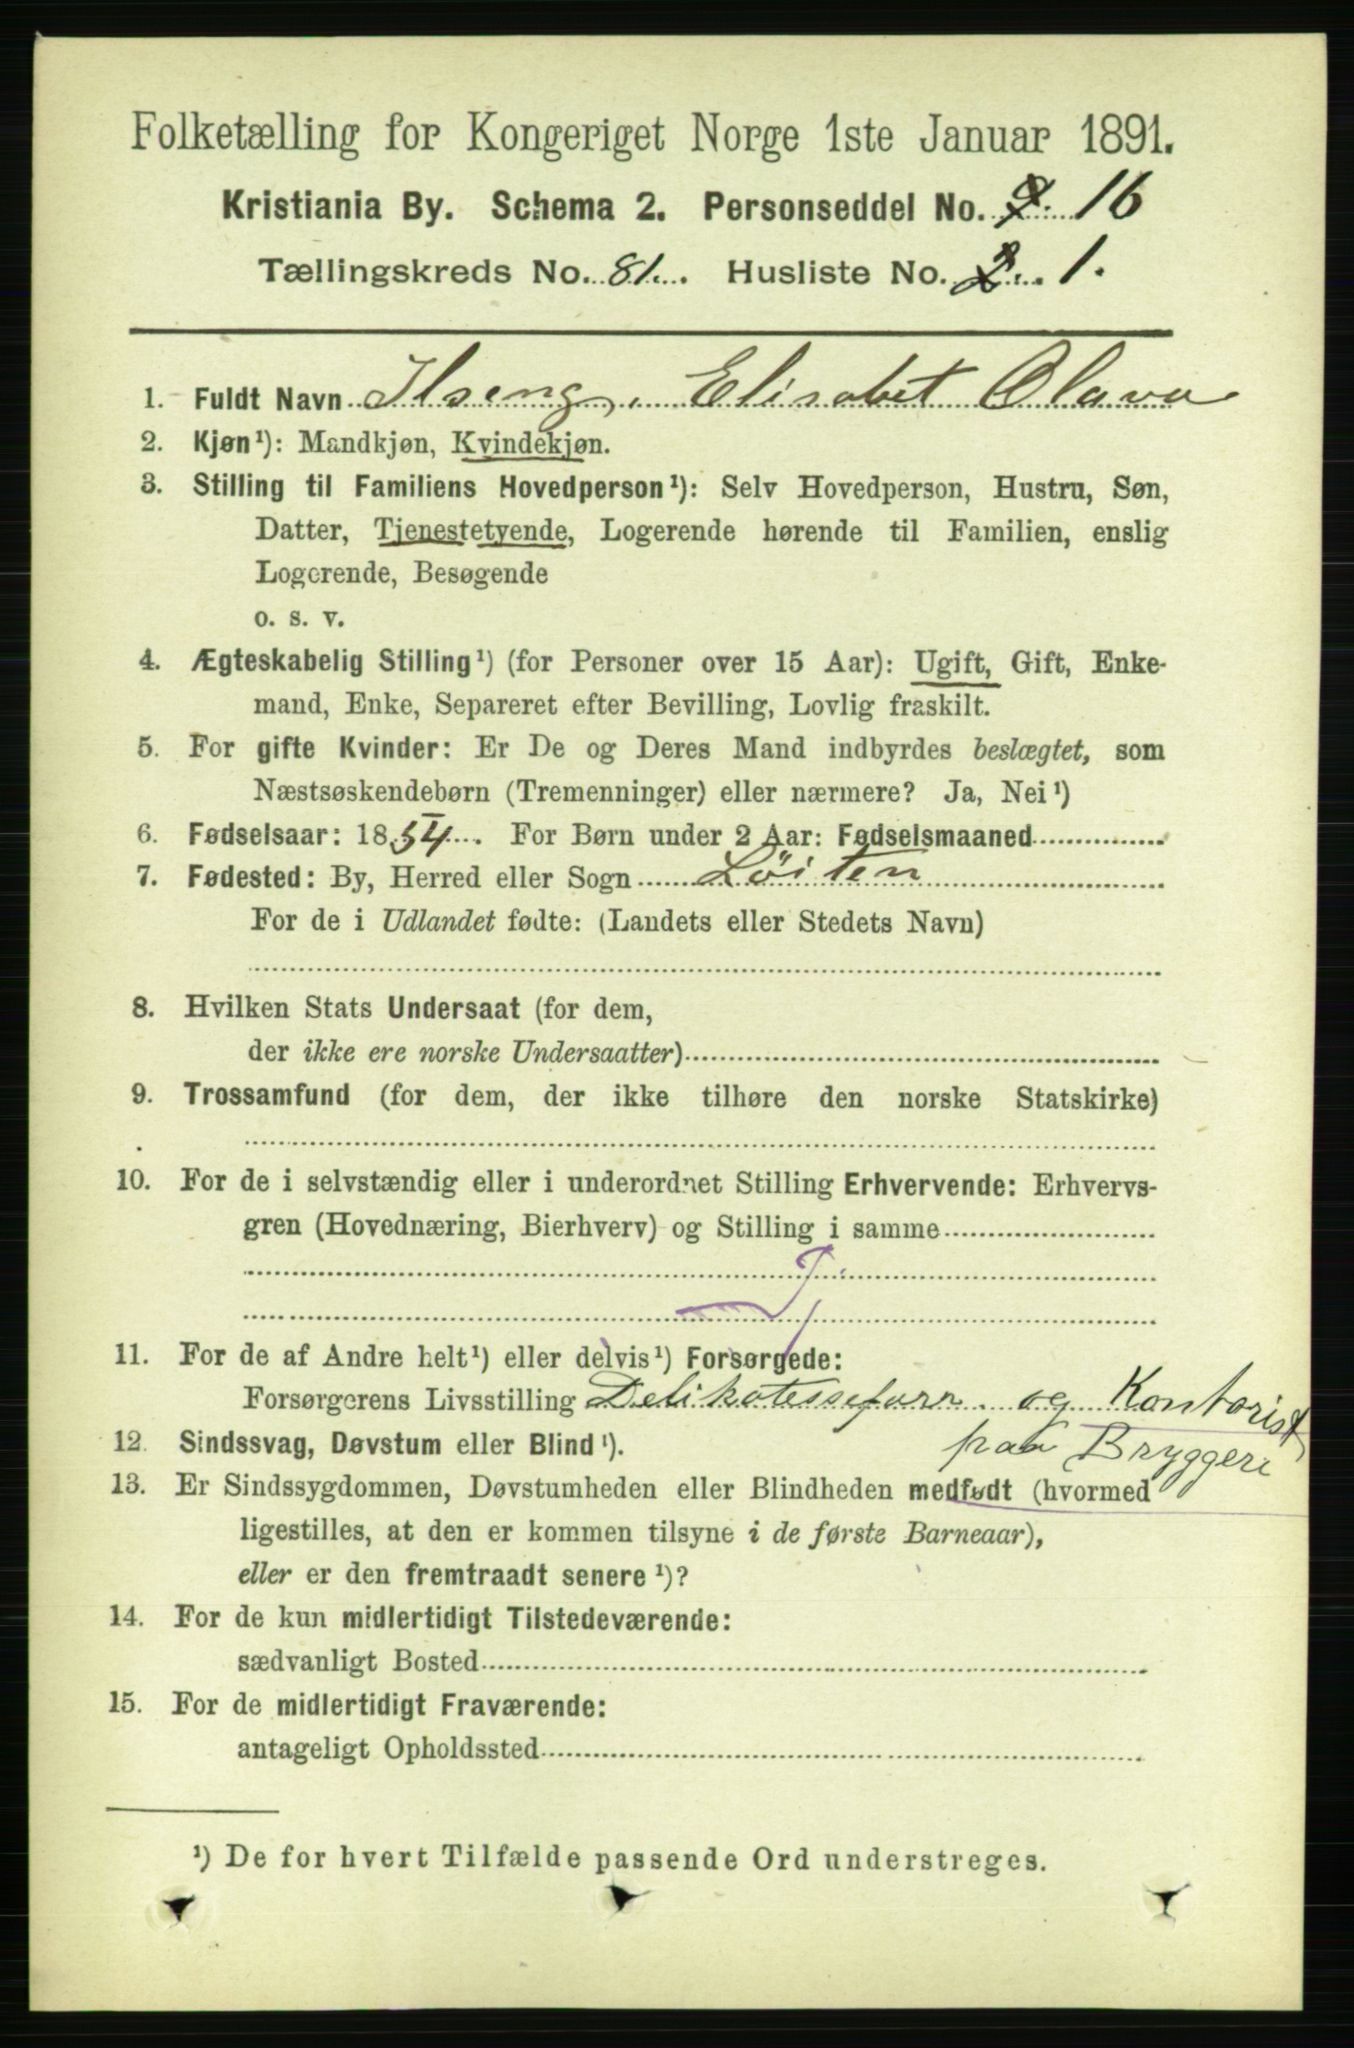 Folketælling for Kongeriget Norge 1ste Januar 1891.
Kristiania By. Schema 2. Personseddel No. 16
Tællingskreds No. 81. Husliste No. 2 1.
1. Fuldt Navn Ilseng, Elisabet Olava
2. Kjøn¹): Mandkjøn, Kvindekjøn.
3. Stilling til Familiens Hovedperson¹): Selv Hovedperson, Hustru, Søn,
Datter, Tjenestetyende, Logerende hørende til Familien, enslig
Logerende, Besøgende
o. s. v.
4. Ægteskabelig Stilling¹) (for Personer over 15 Aar): Ugift, Gift, Enke-
mand, Enke, Separeret efter Bevilling, Lovlig fraskilt.
5. For gifte Kvinder: Er De og Deres Mand indbyrdes beslægtet, som
Næstsøskendebørn (Tremenninger) eller nærmere? Ja, Nei¹)
6. Fødselsaar: 1854. For Børn under 2 Aar: Fødselsmaaned
7. Fødested: By, Herred eller Sogn Løiten
For de i Udlandet fødte: (Landets eller Stedets Navn)
8. Hvilken Stats Undersaat (for dem,
der ikke ere norske Undersaatter)
9. Trossamfund (for dem, der ikke tilhøre den norske Statskirke)
10. For de i selvstændig eller i underordnet Stilling Erhvervende: Erhvervs-
gren (Hovednæring, Bierhverv) og Stilling i samme
11. For de af Andre helt¹) eller delvis¹) Forsørgede:
Forsørgerens Livsstilling Delikatesseforr. og Kontorist
paa Bryggeri
12. Sindssvag, Døvstum eller Blind¹).
13. Er Sindssygdommen, Døvstumheden eller Blindheden medfødt (hvormed
ligestilles, at den er kommen tilsyne i de første Barneaar),
eller er den fremtraadt senere¹)?
14. For de kun midlertidigt Tilstedeværende:
sædvanligt Bosted
15. For de midlertidigt Fraværende:
antageligt Opholdssted
¹) De for hvert Tilfælde passende Ord understreges.